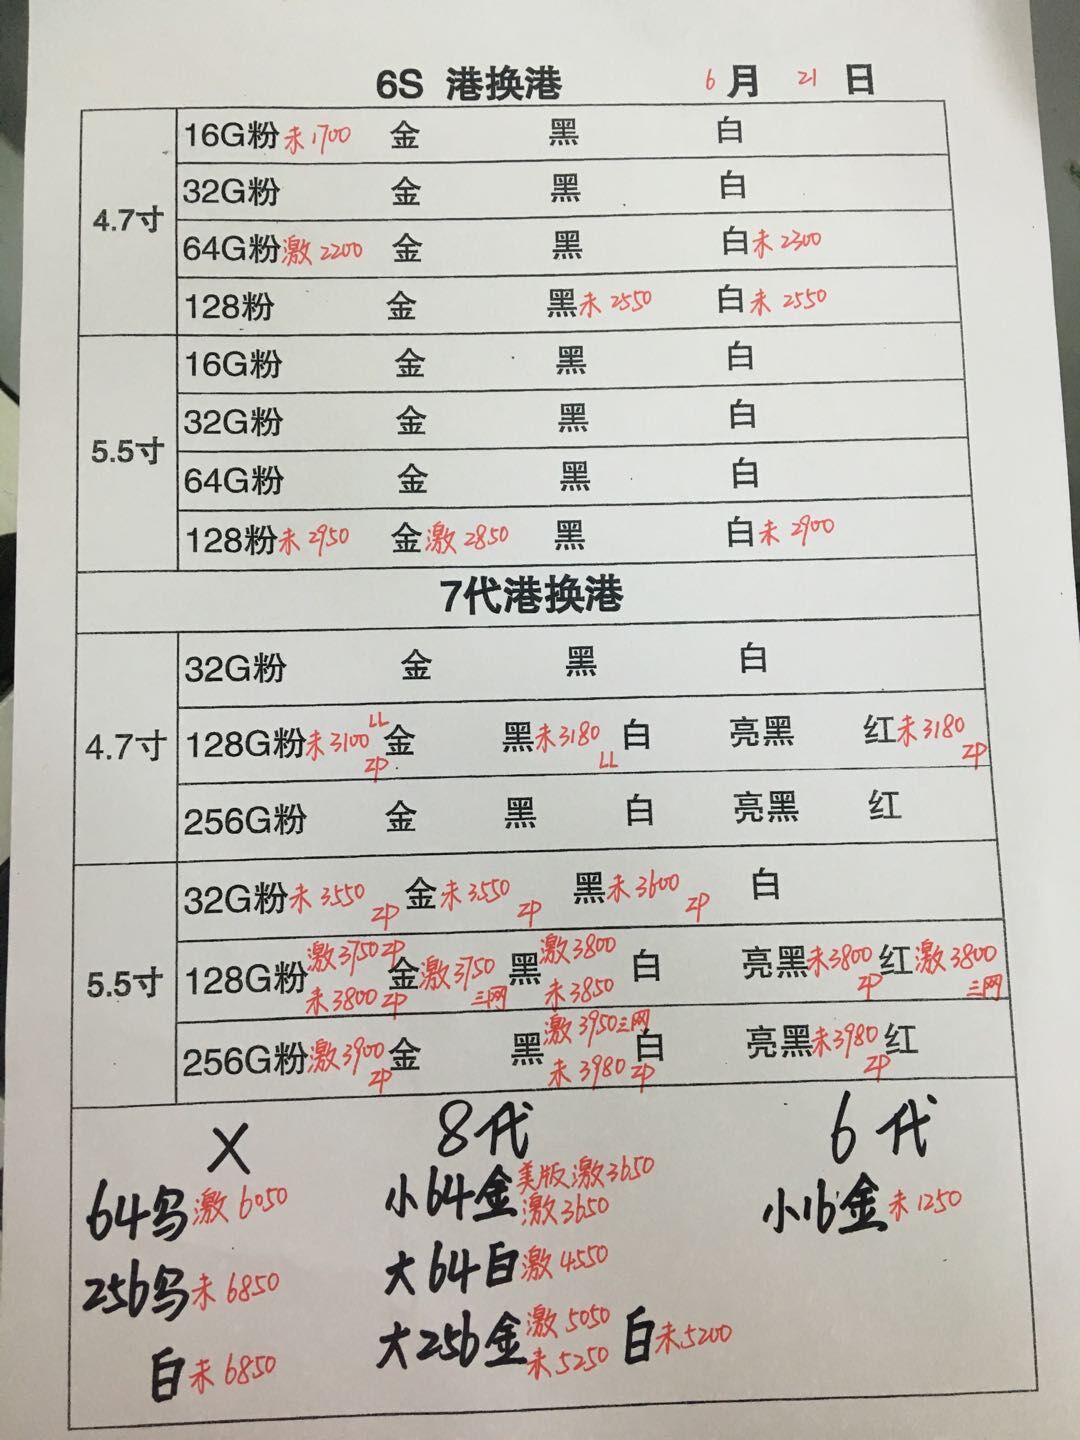 6S 港换港 6月21日
4.7寸
16G粉未1700 金 黑 白
32G粉 金 黑 白
64G粉激2200 金 黑 白未2300
128粉 金 黑未2550 白未2550
5.5寸
16G粉 金 黑 白
32G粉 金 黑 白
64G粉 金 黑 白
128粉未2950 金激2850 黑 白未2900
7代港换港
4.7寸
32G粉 金 黑 白
128G粉未3100 LL ZP 金 黑未3180 LL 白 亮黑 红未3180 ZP
256G粉 金 黑 白 亮黑 红
5.5寸
32G粉未3550 ZP 金未3550 ZP 黑未3600 ZP 白
128G粉激3750ZP 未3800ZP 金激3750三网 黑激3800 未3850 白 亮黑未3800ZP 红激3800三网
256G粉激3900ZP 金 黑激3950三网 未3980ZP 白 亮黑未3980ZP 红
X 8代 6代
64乌激6050 小64金美版激3650 激3650 小16金未1250
256乌未6850 大64白激4550
白未6850 大256金激5050 未5250 白未5200